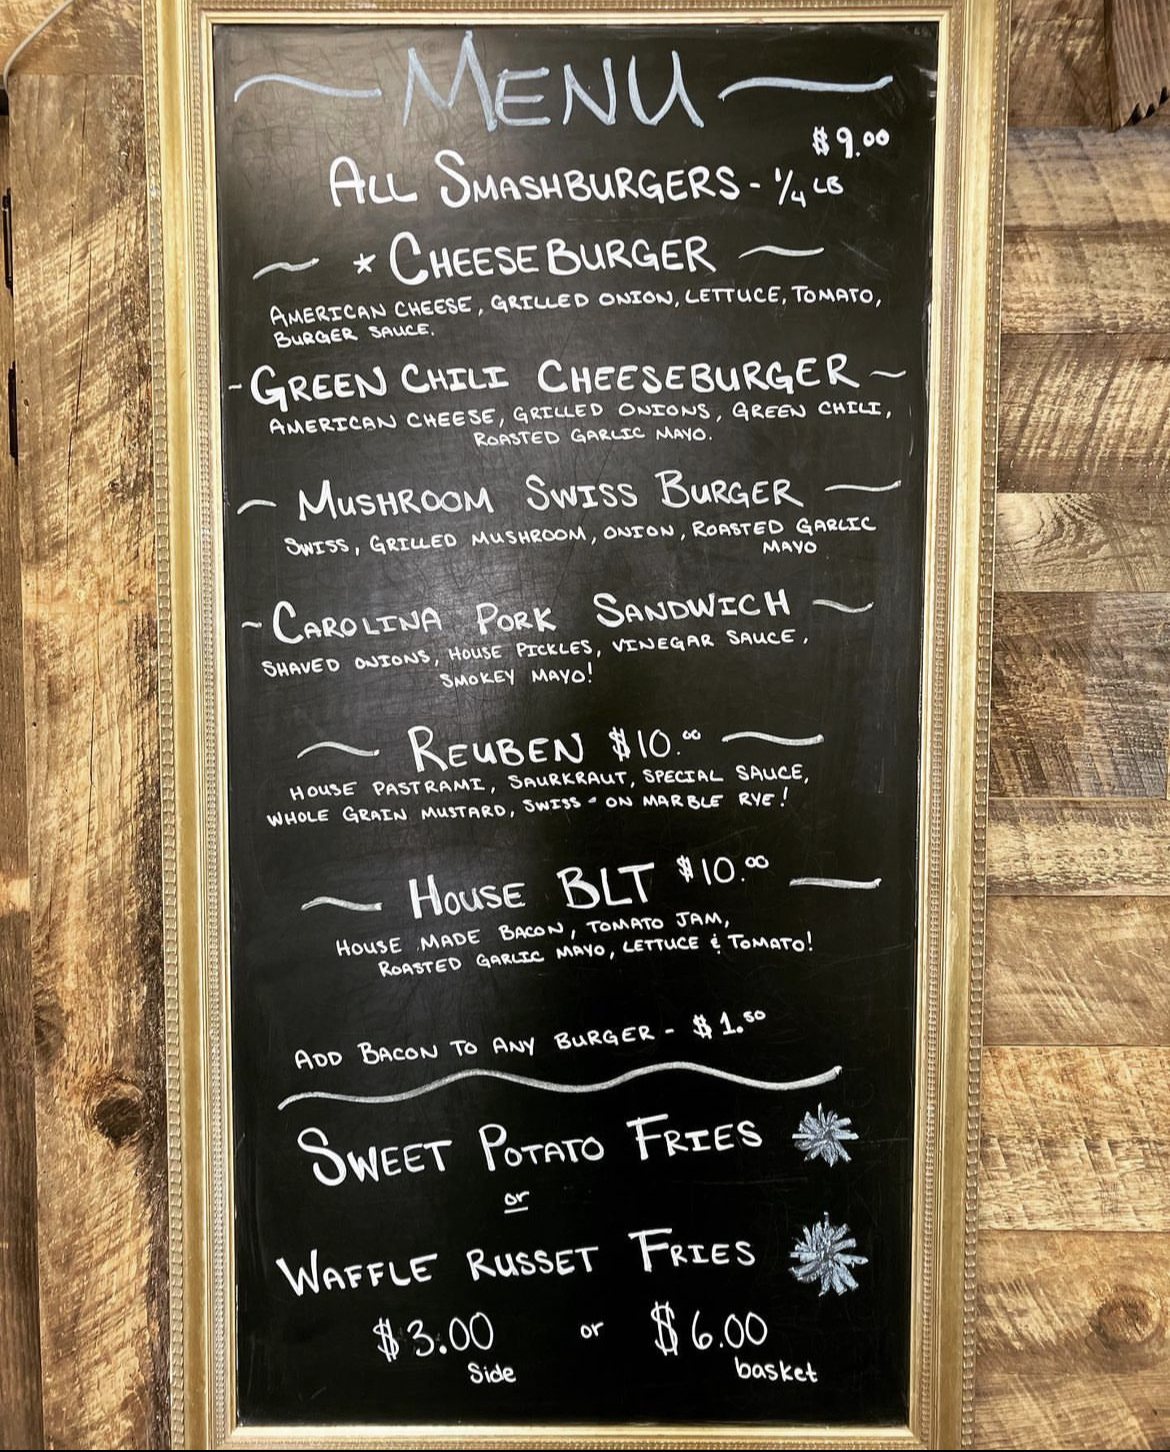 ~ MENU ~
$9.00
ALL SMASHBURGERS - 1/4 LB
~ * CHEESEBURGER ~
AMERICAN CHEESE, GRILLED ONION, LETTUCE, TOMATO,
BURGER SAUCE.
- GREEN CHILI CHEESEBURGER ~
AMERICAN CHEESE, GRILLED ONIONS, GREEN CHILI,
ROASTED GARLIC MAYO.
~ MUSHROOM SWISS BURGER ~
SWISS, GRILLED MUSHROOM, ONION, ROASTED GARLIC
MAYO
~ CAROLINA PORK SANDWICH ~
SHAVED ONIONS, HOUSE PICKLES, VINEGAR SAUCE,
SMOKEY MAYO!
~ REUBEN $10.00 ~
HOUSE PASTRAMI, SAURKRAUT, SPECIAL SAUCE,
WHOLE GRAIN MUSTARD, SWISS - ON MARBLE RYE!
~ HOUSE BLT $10.00 ~
HOUSE MADE BACON, TOMATO JAM,
ROASTED GARLIC MAYO, LETTUCE & TOMATO!
ADD BACON TO ANY BURGER - $1.50
SWEET POTATO FRIES
or
WAFFLE RUSSET FRIES
$3.00 or $6.00
Side basket